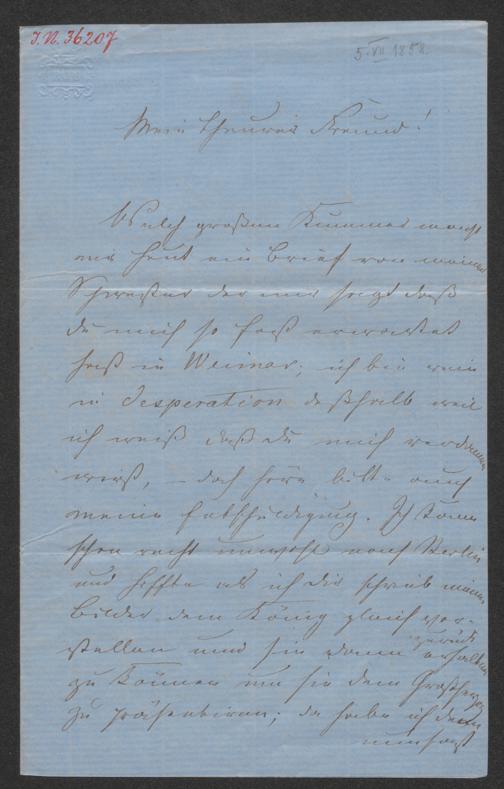 I.N. 36207
5. VII 1858
Mein theures Freund!
Welch großen Kummer macht
mir heut ein Brief von meiner
Schwester der mir sagt daß
du mich so fest erwartet
hast in Weimar; ich bin nun
in Desperation deßhalb weil
ich weiß daß du mich verdammen
wirst, – doch höre bitte auch
meine Entschuldigung. Ich kam
schon recht unwohl nach Berlin
und hoffte als ich dir schrieb meine
Bilder dem König gleich vor-
stellen und sie dann zurück erhalten
zu können um sie dem Großherzog
zu präsentiren; da habe ich denn
umsonst